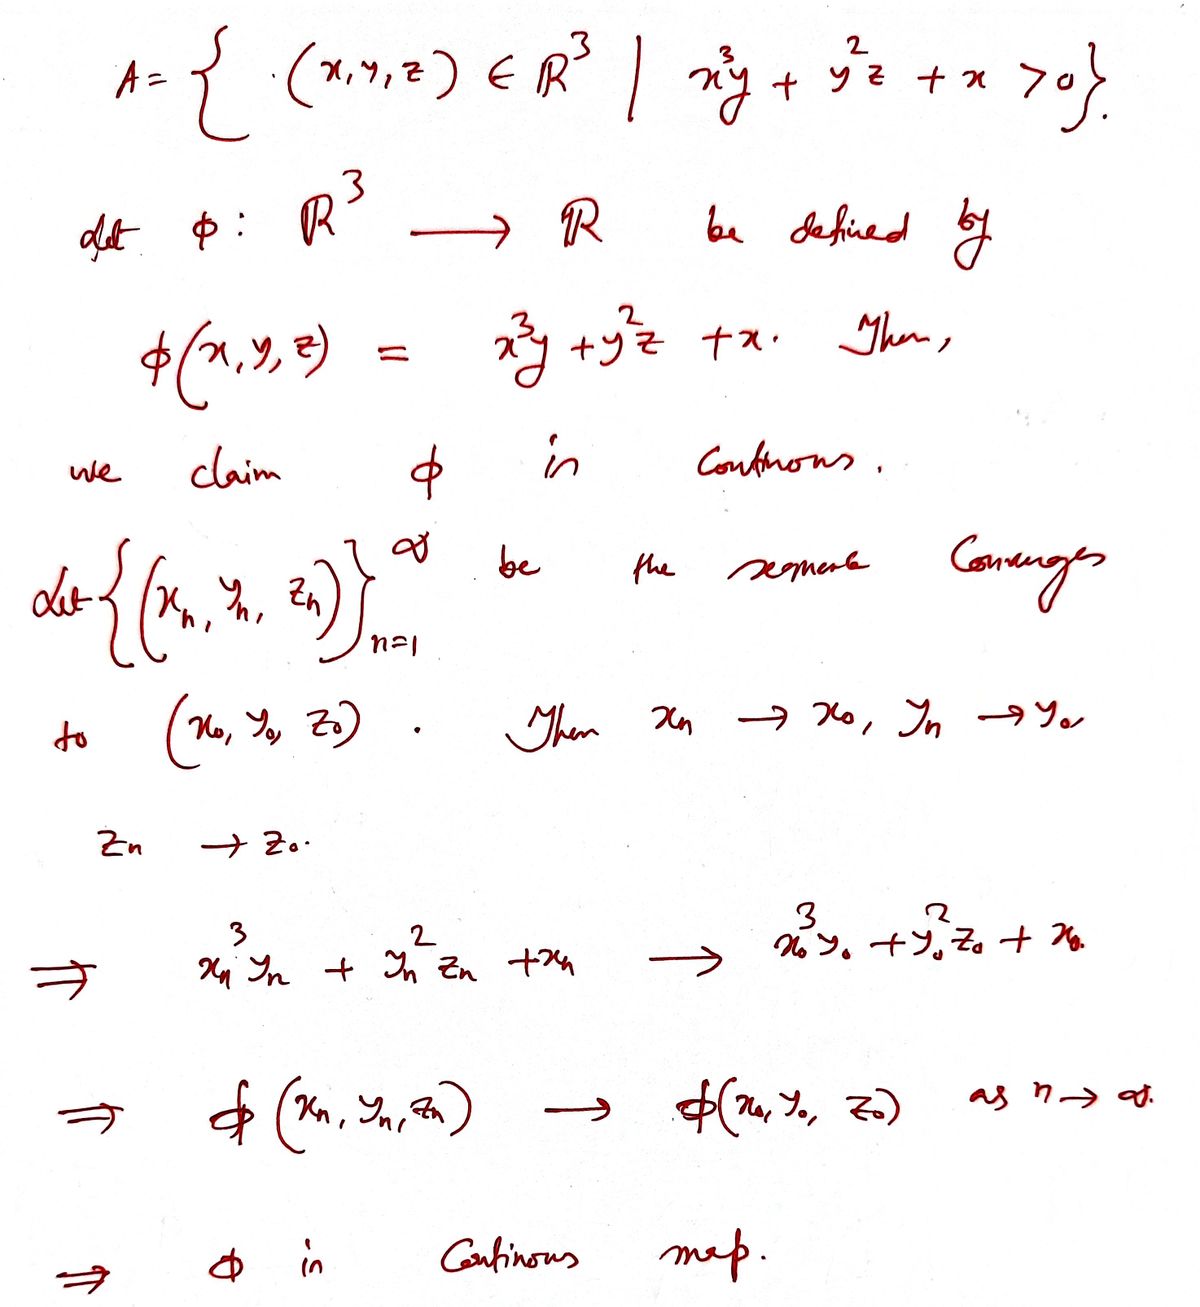 A = { (x, y, z) ∈ ℝ³ | x³y + y²z + x > 0 }.
Let ϕ : ℝ³ ⟶ ℝ be defined by
ϕ(x, y, z) = x³y + y²z + x. Then,
we claim ϕ is continous.
Let {(xₙ, yₙ, zₙ)}ₙ₌₁^∞ be the sequence Converges
to (x₀, y₀, z₀). Then xₙ → x₀, yₙ → y₀
zₙ → z₀.
⇒ xₙ³yₙ + yₙ²zₙ + xₙ ⟶ x₀³y₀ + y₀²z₀ + x₀.
⇒ ϕ(xₙ, yₙ, zₙ) ⟶ ϕ(x₀, y₀, z₀) as n → ∞.
⇒ ϕ is Continous map.